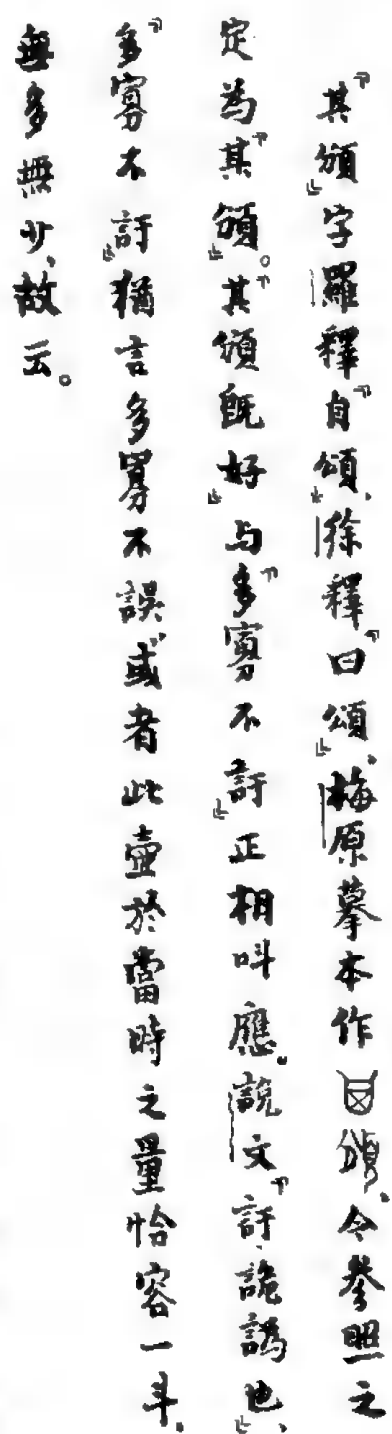 「其頌」字羅釋「自頌」，徐釋「曰頌」，梅原摹本作頌，今參照之
定為「其頌」。「其頌既好」与「多寡不訏」正相叫應。說文「訏，詭譌也」，
「多寡不訏」猶言多寡不誤，或者此壺於當時之量恰容一斗，
無多無少，故云。